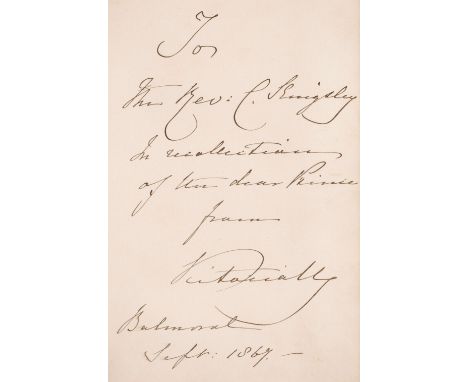 To
The Rev: C. Kingsley
In recollection
of the dear Prince
from
Victoria R
Balmoral
Sept: 1867. —